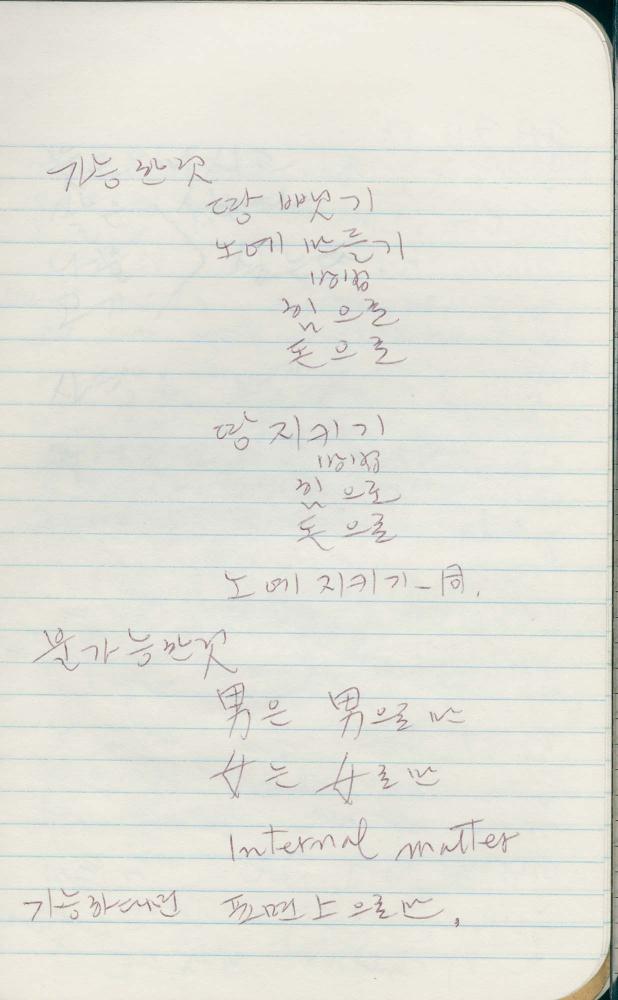 가능한것
땅 빼앗기
노예 만들기
방법
힘으로
돈으로
땅 지키기
방법
힘으로
돈으로
노예 지키기 - 同.
불가능한것
男은 男으로만
女는 女로만
Internal matter
가능하다면 표면上으로만.